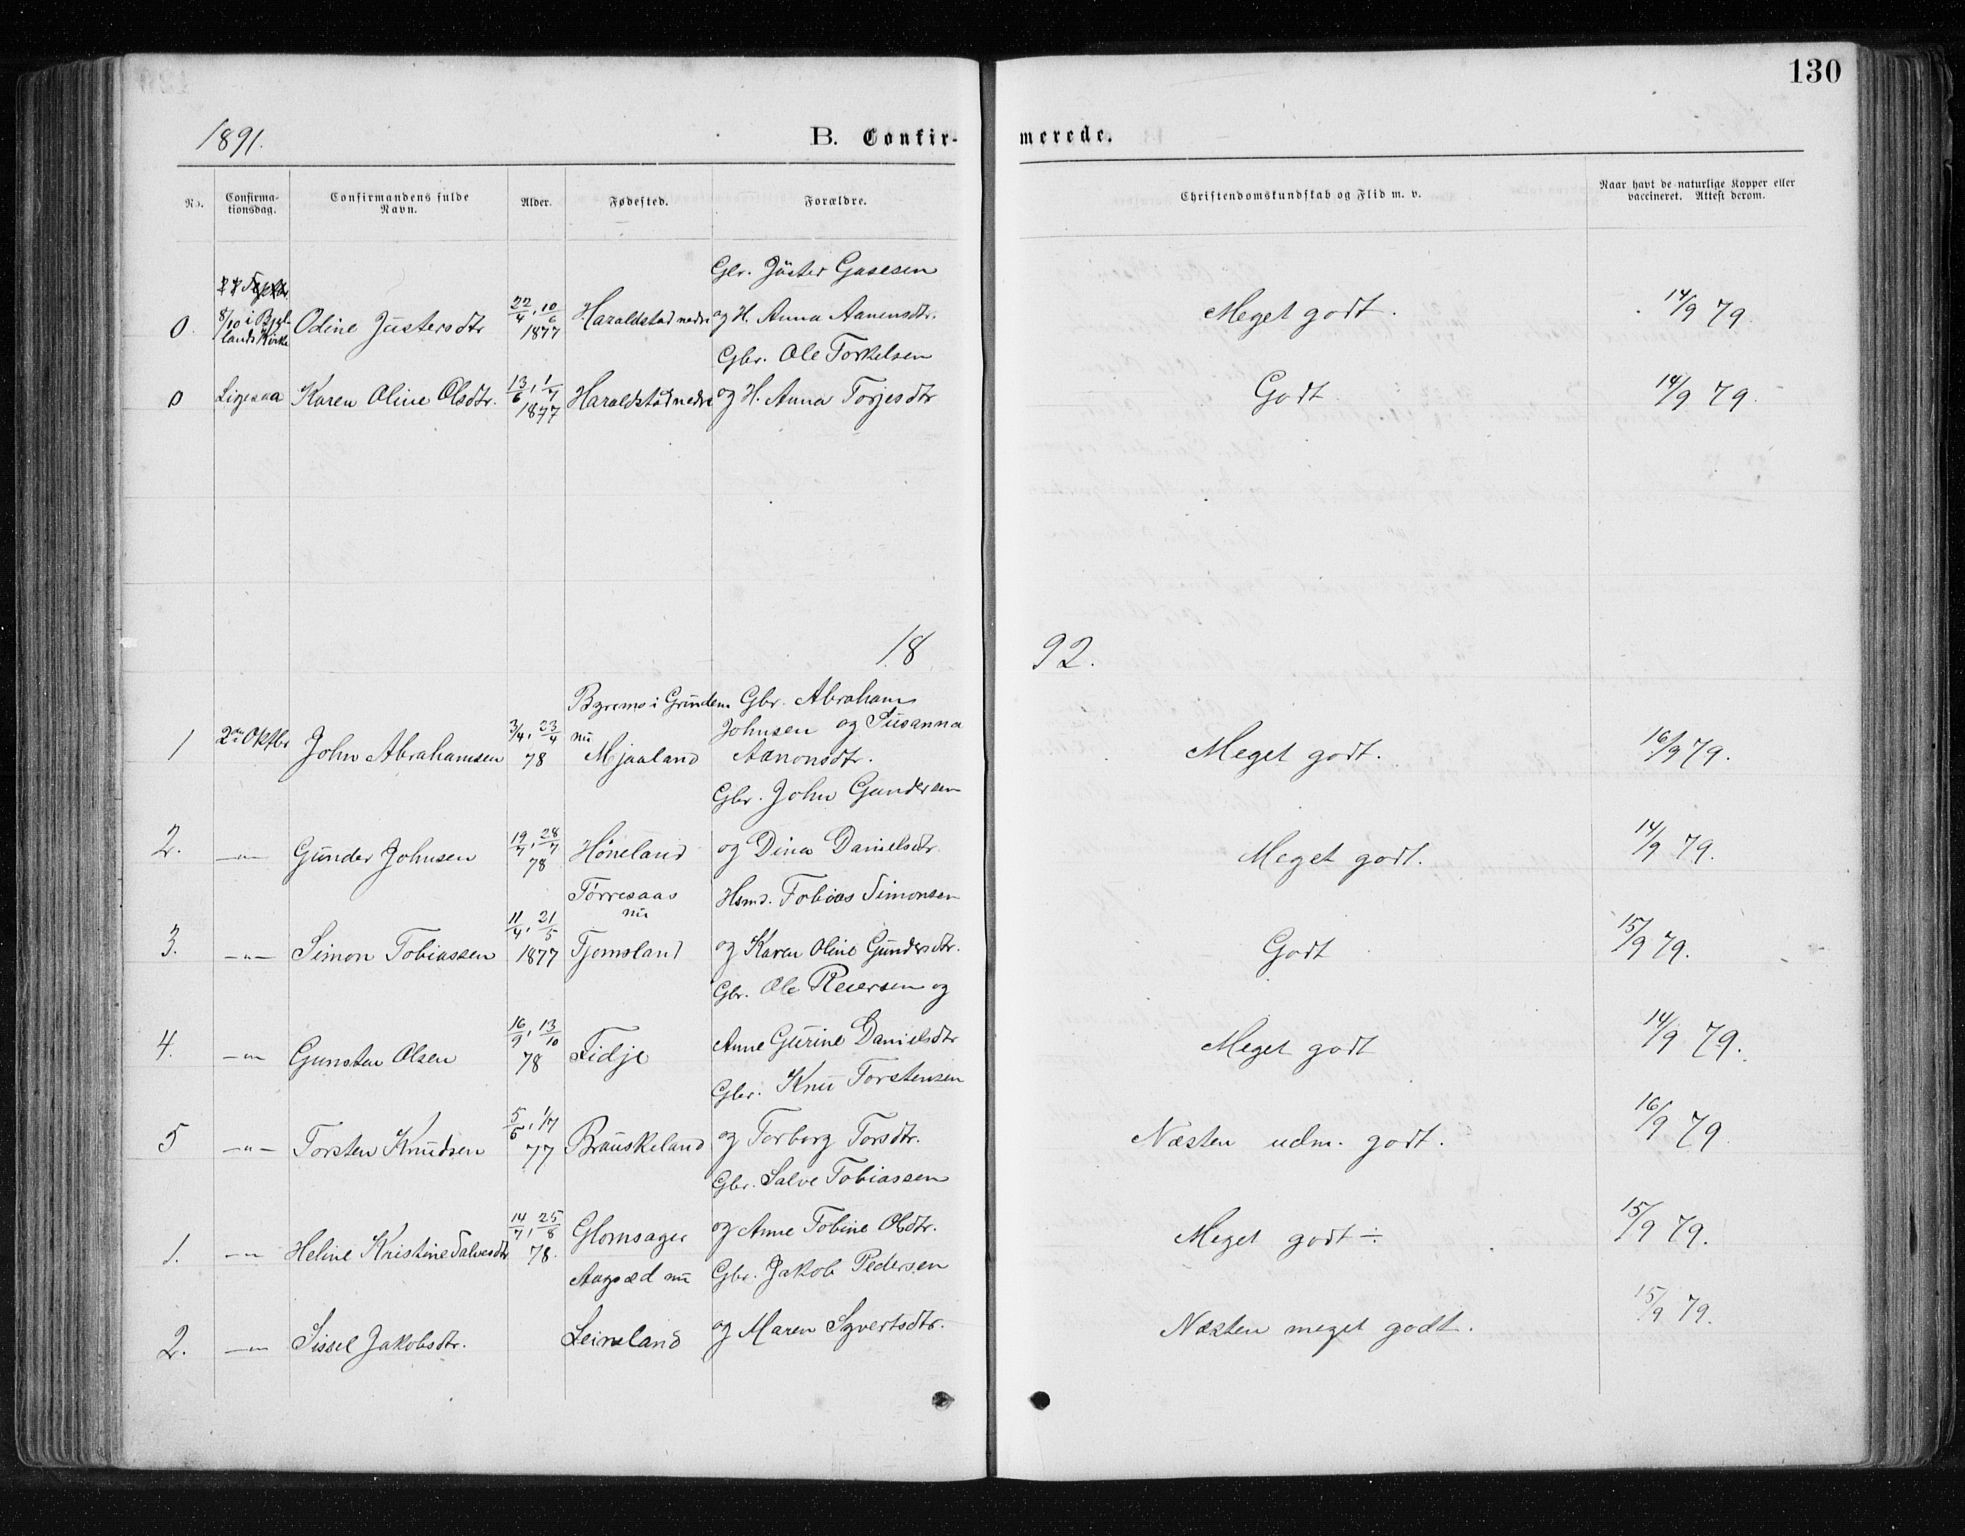 130
1891.
B. Confirmerede.
No.
Confirmationsdag.
Confirmandens fulde Navn.
Alder.
Fødested.
Forældre.
Christendomskundskab og Flid m. v.
Naar havt de naturlige Kopper eller vaccineret. Attest derom.
0. 8/10 i Bjelands Kirke Odine Justersdtr 22/4, 10/6 1877 Haraldstad nedre Gbr. Jüster Gasesen og H. Anna Aanensdtr. Meget godt. 14/9 79.
0 Ligesaa Karen Oline Olsdtr. 13/6, 1/7 1877 Haraldstad nedre Gbr. Ole Torkelsen og H. Anna Torjesdtr Godt 14/9 79.
1892.
1 2den Oktbr John Abrahamsen 3/4, 23/4 78 Byremo i Grindem nu Mjaaland Gbr. Abraham Johnsen og Susanna Aanonsdtr. Meget godt. 16/9 79.
2. —"— Gunder Johnsen 19/7, 28/7 78 Høneland Gbr. John Gundersen og Dina Danielsdtr. Meget godt. 14/9 79.
3. —"— Simon Tobiassen 11/4, 21/5 1877 Tørresaas nu Tjomsland Hsmd. Tobias Simonsen og Karen Oline Gundersdtr. Godt 15/9 79.
4. —"— Gunsten Olsen 16/9, 13/10 78 Fidje Gbr. Ole Reiersen og Anne Gurine Danielsdtr Meget godt 14/9 79.
5 —"— Torsten Knudsen 5/6, 1/7 77 Brauskeland Gbr. Knu Torstensen og Torborg Torsdtr. Næsten udm. godt. 16/9 79.
1. —"— Heline Kristine Salvesdtr 14/7, 25/8 78. Glomsager Gbr. Salve Tobiassen og Anne Tobine Olsdtr. Meget godt ÷ 15/9 79.
2. —"— Sissel Jakobsdtr. Aagsæd nu Leireland Gbr. Jakob Pedersen og Maren Syvertsdtr. Næsten meget godt. 15/9 79.